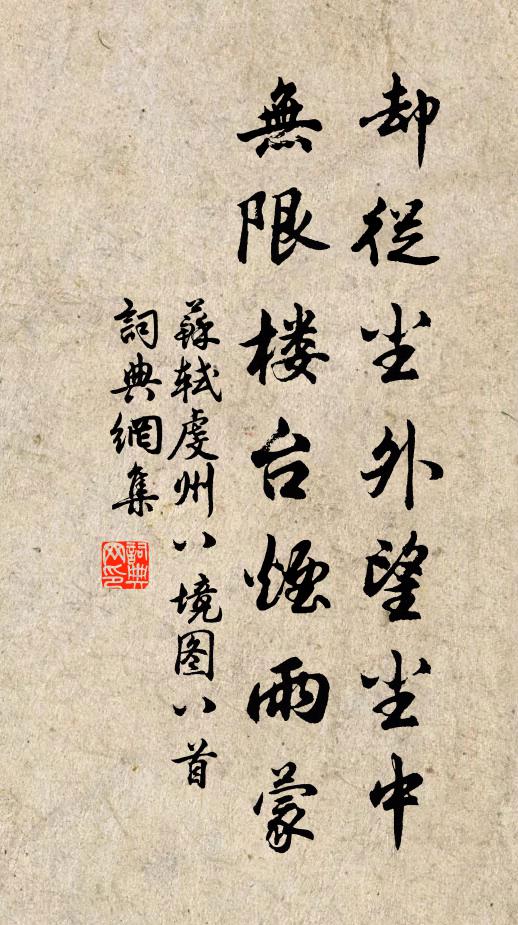 却從尘外望尘中
無限楼台煙雨蒙
蘇軾虔州八境图八首
詞典網集
詞典网印